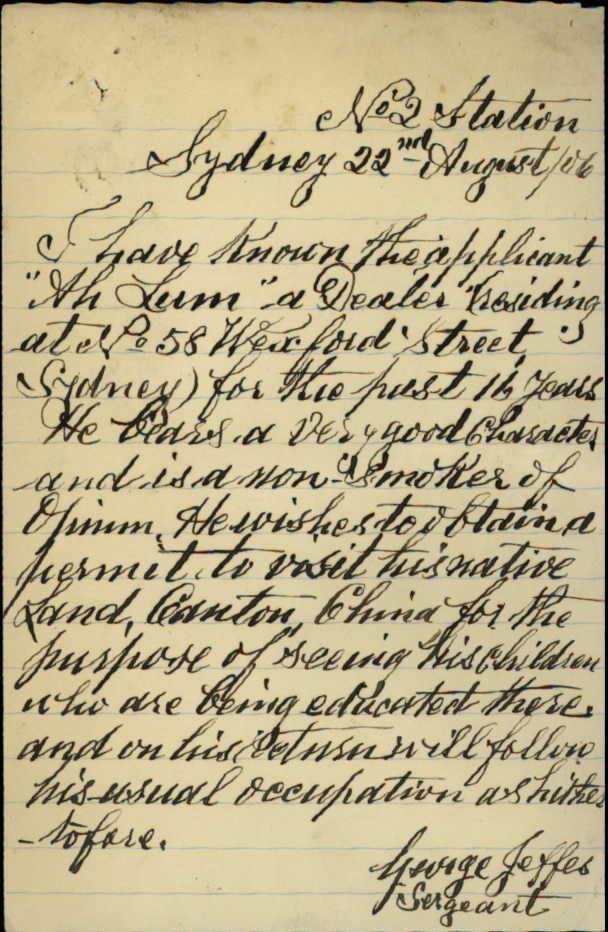 No 2 Station
Sydney 22nd August/06
I have known the applicant
"Ah Lum" a Dealer (residing
at No 58 Wexford Street,
Sydney) for the past 16 years
He bears a very good Character
and is a non-Smoker of
Opium. He wishes to obtain a
permit to visit his native
Land, Canton, China for the
purpose of seeing his children
who are being educated there.
and on his return will follow
his usual occupation as hither
-tofore.
George Jeffes
Sergeant